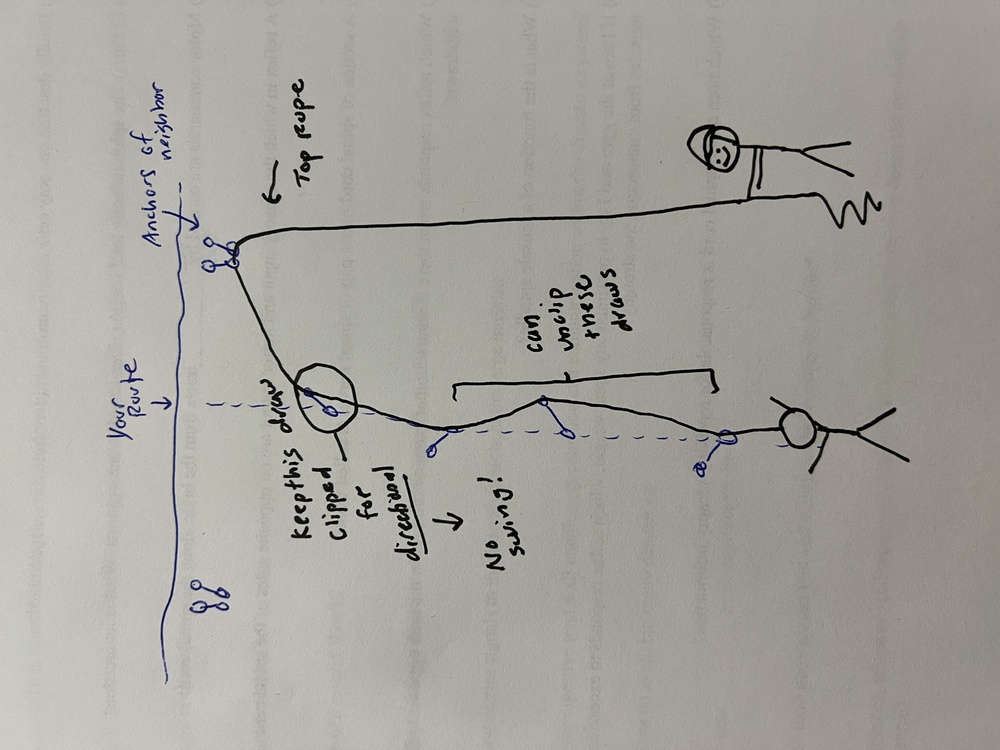 Anchors of
neighbor
Your
Route
←
Top rope
keep this draw
clipped
for
directional
↓
No
swing!
can
unclip
these
draws